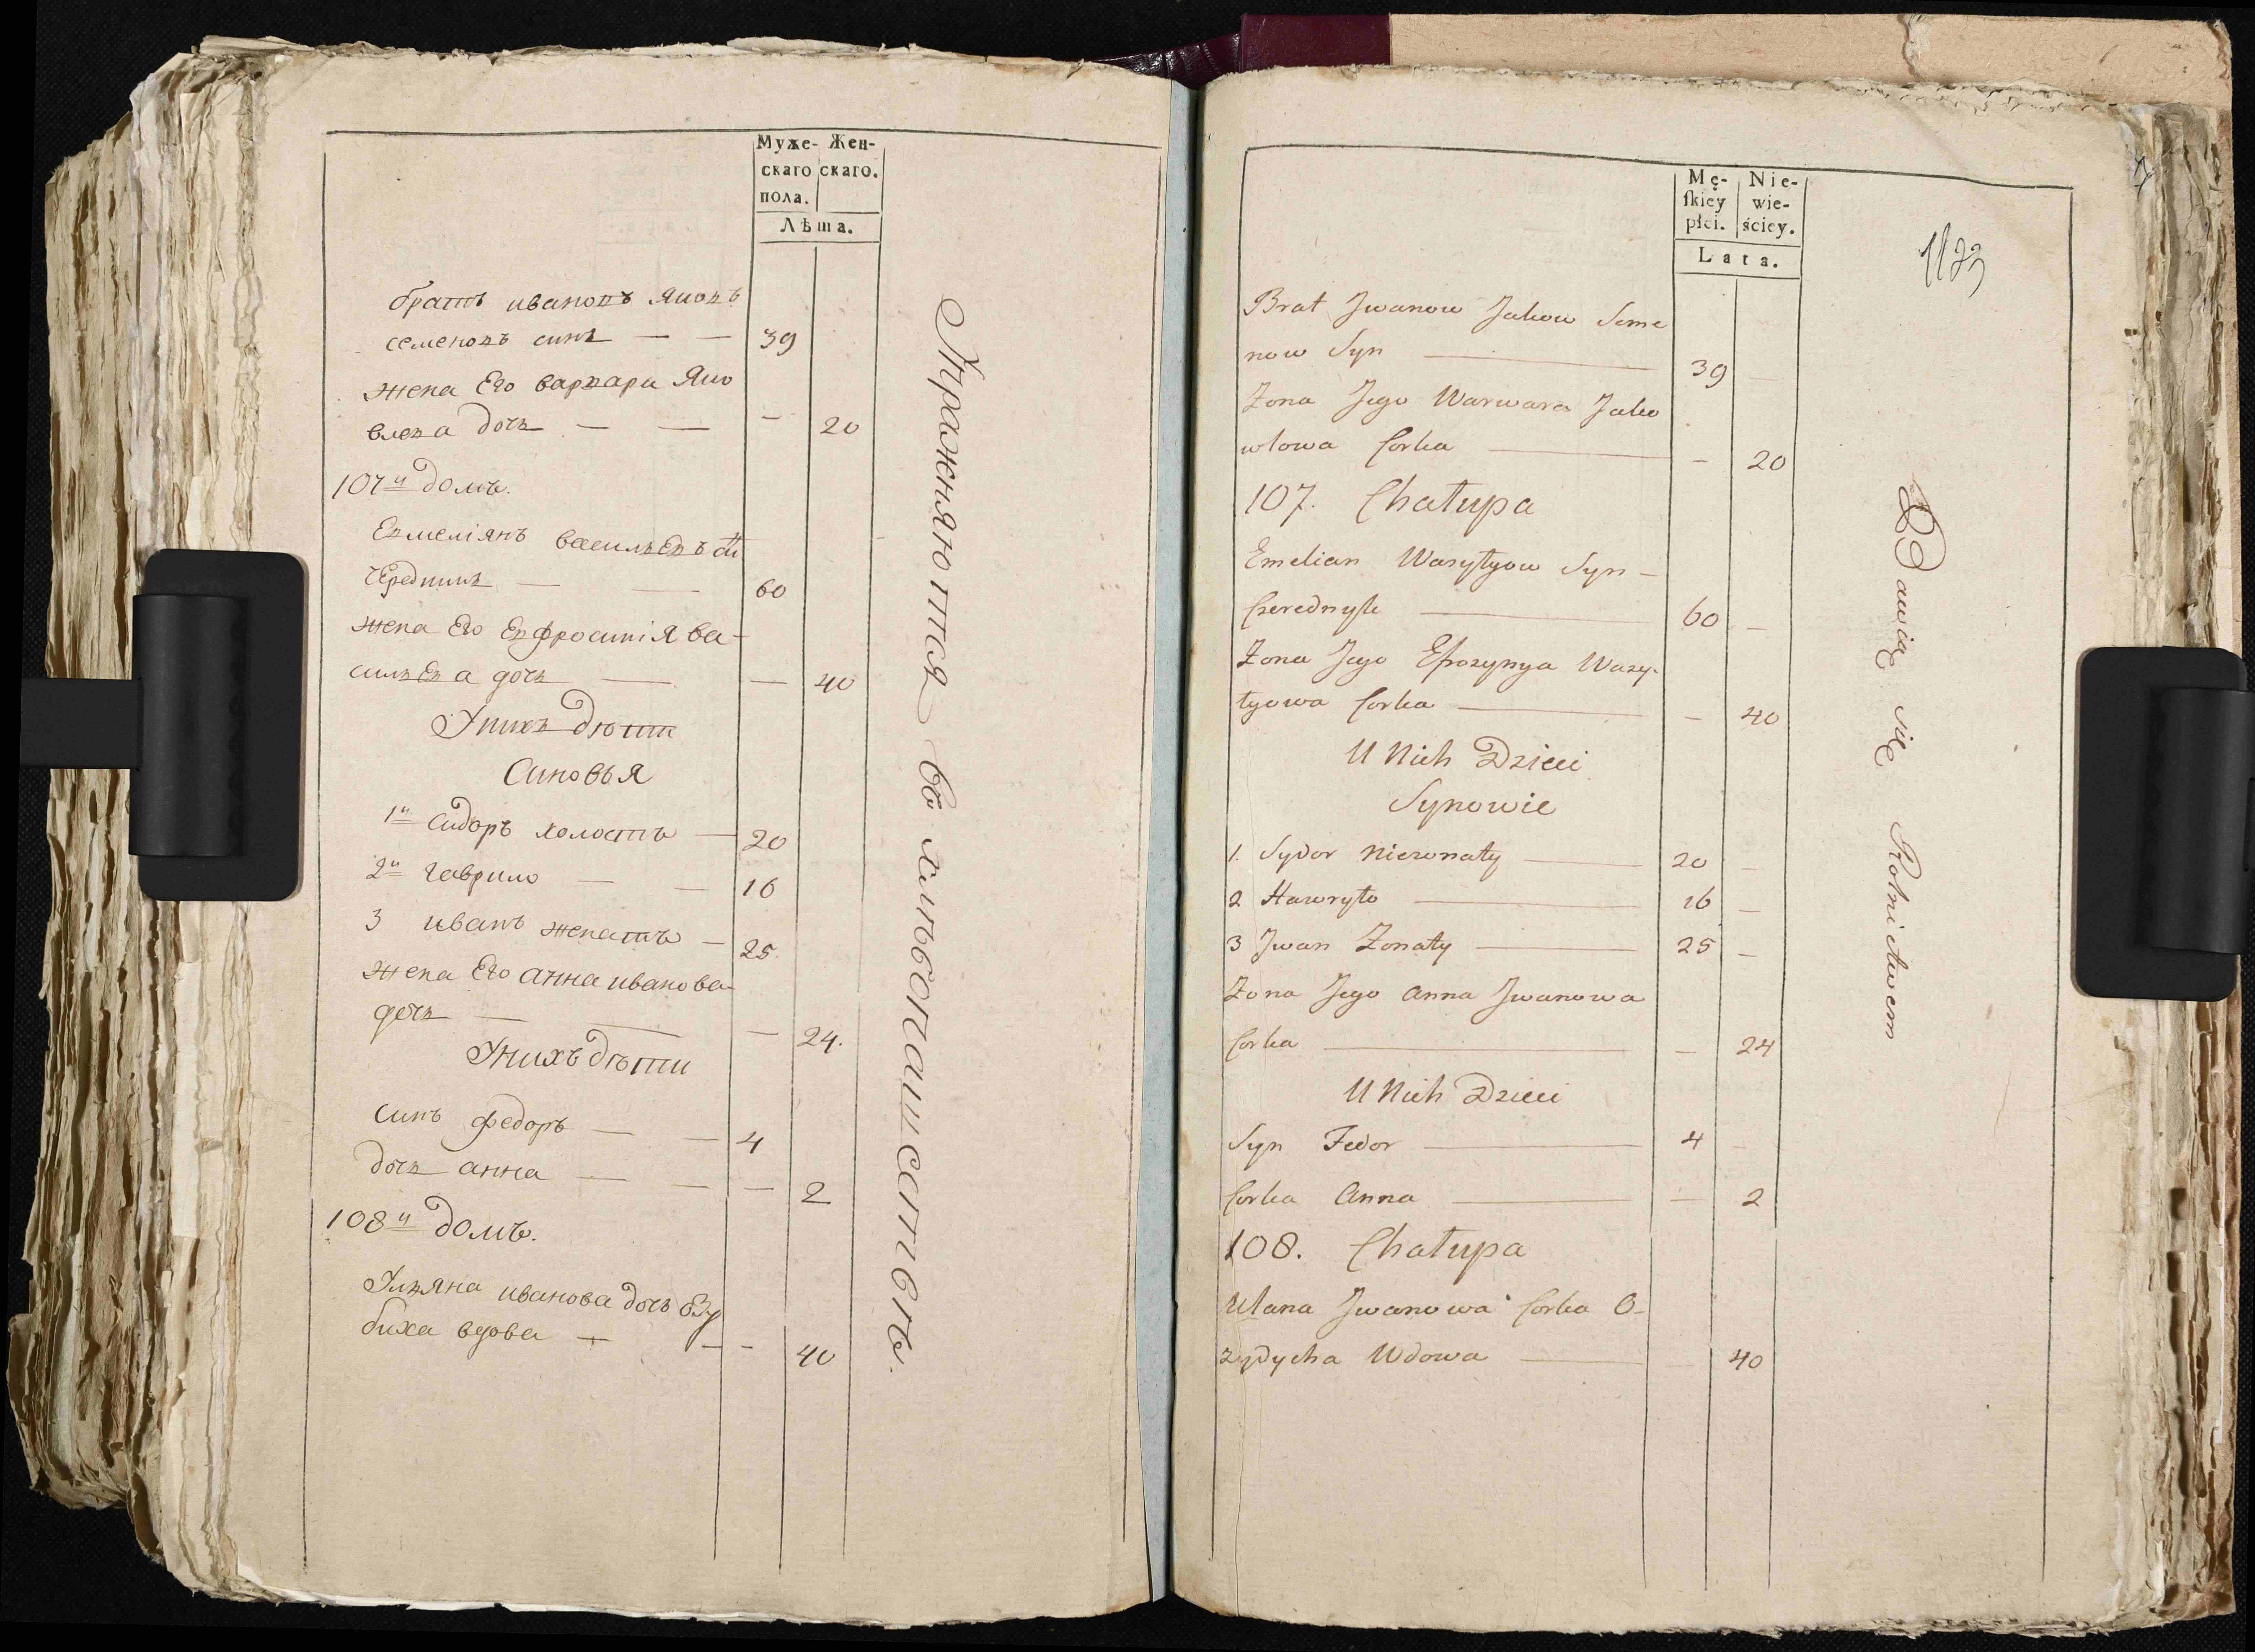 Муже- Жен-
скаго скаго.
пола.
Лѣта.
братъ ивановъ яковъ
семеновъ синъ — — 39
жена Его варвара Яко
влева дочь — — — 20
107й домъ.
Емеліянъ васильевъ сн
Чередникъ — — 60
жена Его Ефросинія ва-
сильева дочь — — 40
Унихъ дѣти
Синовья
1й сидоръ холостъ — 20
2й гаврило — — 16
3 иванъ женатъ — 25.
жена Его анна иванова
дочь — — — 24.
Унихъ дѣти
синъ федоръ — — 4
дочь анна — — — 2
108й домъ.
Ульяна иванова дочь Озу
биха вдова — — - 40
Упражняются въ хлѣбопашествѣ.
Mę- Nie-
skiey wie-
płci. ściey.
Lata.
1123
Brat Jwanow Jakow Seme
now Syn — 39 —
Zona Jego Warwara Jako
wlowa Corka — - 20
107. Chałupa
Emelian Wasylyow Syn –
Czerednyk — 60 –
Zona Jego Efrozynya Wasy-
lyowa Corka — – 40
U Nich Dzieci
Synowie
1. Sydor Niezonaty — 20 –
2 Hawryło — 16 –
3 Jwan Zonaty — 25 –
Zona Jego Anna Jwanowa
Corka — – 24
U Nich Dzieci
Syn Fedor — 4 –
Corka Anna — — 2
108. Chałupa
Ulana Jwanowa Corka O-
Wdowa — 40
Bawią się Rolnictwem